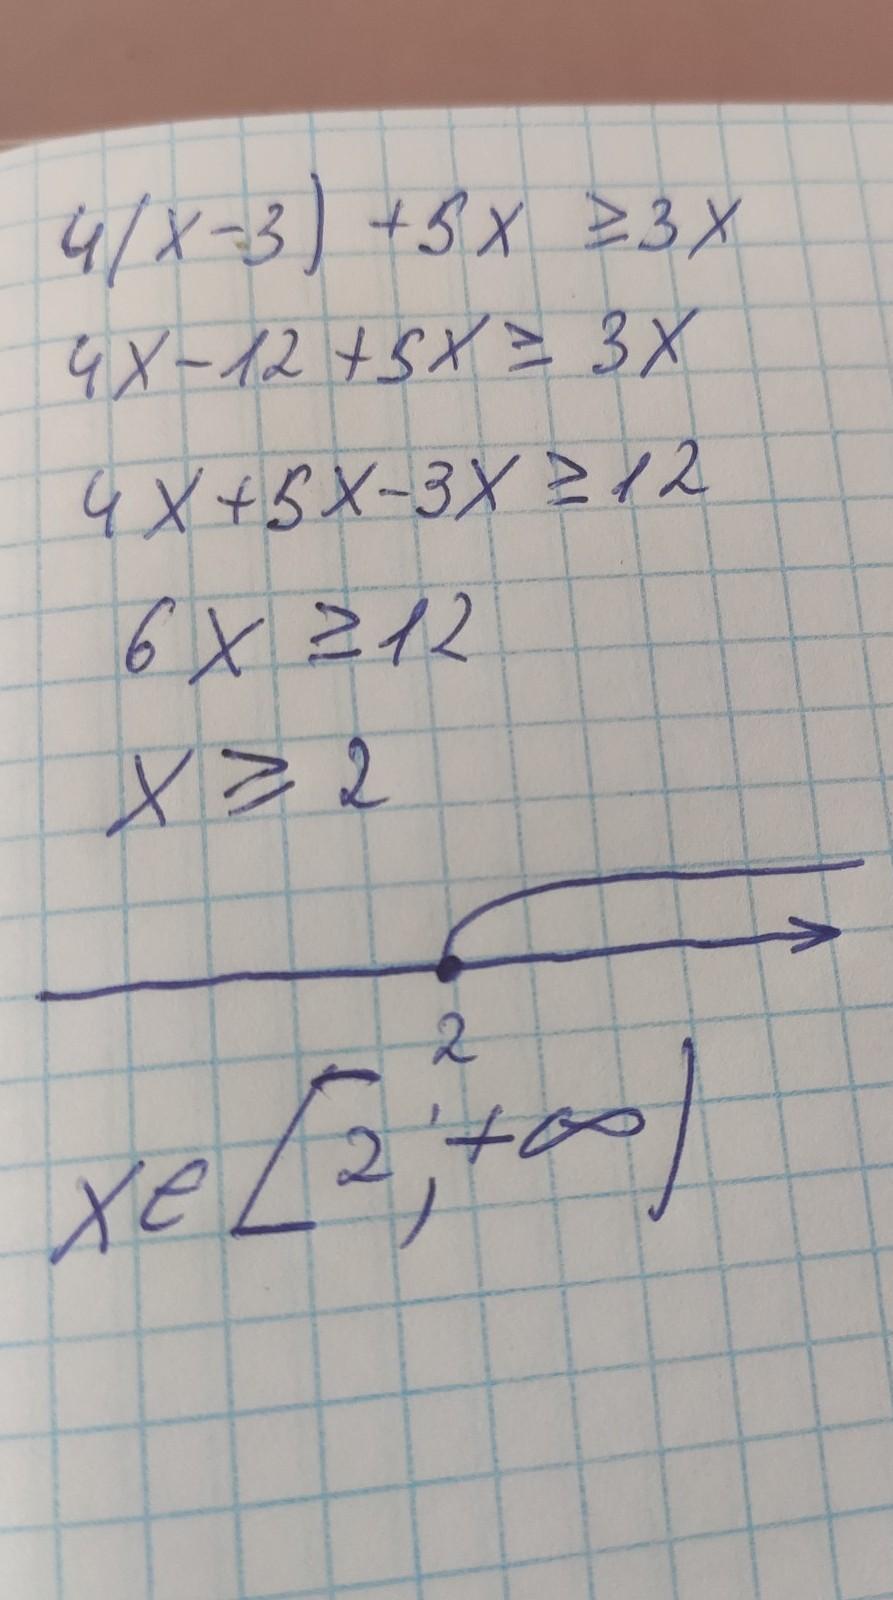 4(x-3) +5x ≥3x
4x-12+5x≥ 3x
4x+5x-3x≥12
6x ≥12
x ≥ 2
2
x∈[2;+∞)